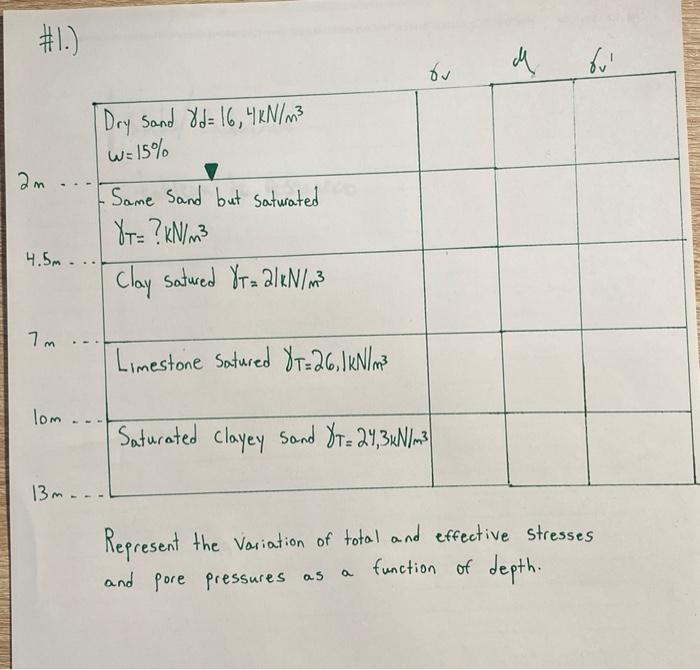 #1.)
σv μ σv'
Dry Sand γd= 16,4kN/m³
w=15%
2m ---
Same Sand but saturated
γT= ? kN/m³
4.5m ---
Clay satured γT= 21kN/m³
7m ---
Limestone Satured γT=26,1kN/m³
10m ---
Saturated clayey sand γT= 24,3kN/m³
13m ---
Represent the variation of total and effective stresses
and pore pressures as a function of depth.